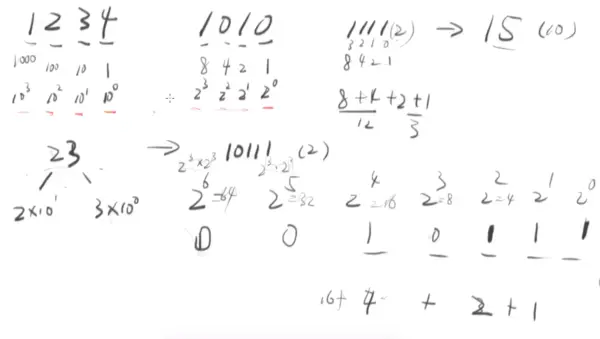 1 2 3 4
1000 100 10 1
10³ 10² 10¹ 10⁰
1 0 1 0
8 4 2 1
2³ 2² 2¹ 2⁰
1111(2) → 15 (10)
3 2 1 0
8 4 2 1
8+4+2+1
12 3
23 → 10111 (2)
2×10¹ 3×10⁰
2⁶=64 2⁵=32 2⁴=16 2³=8 2²=4 2¹ 2⁰
0 0 1 0 1 1 1
16+ 4 + 2 + 1